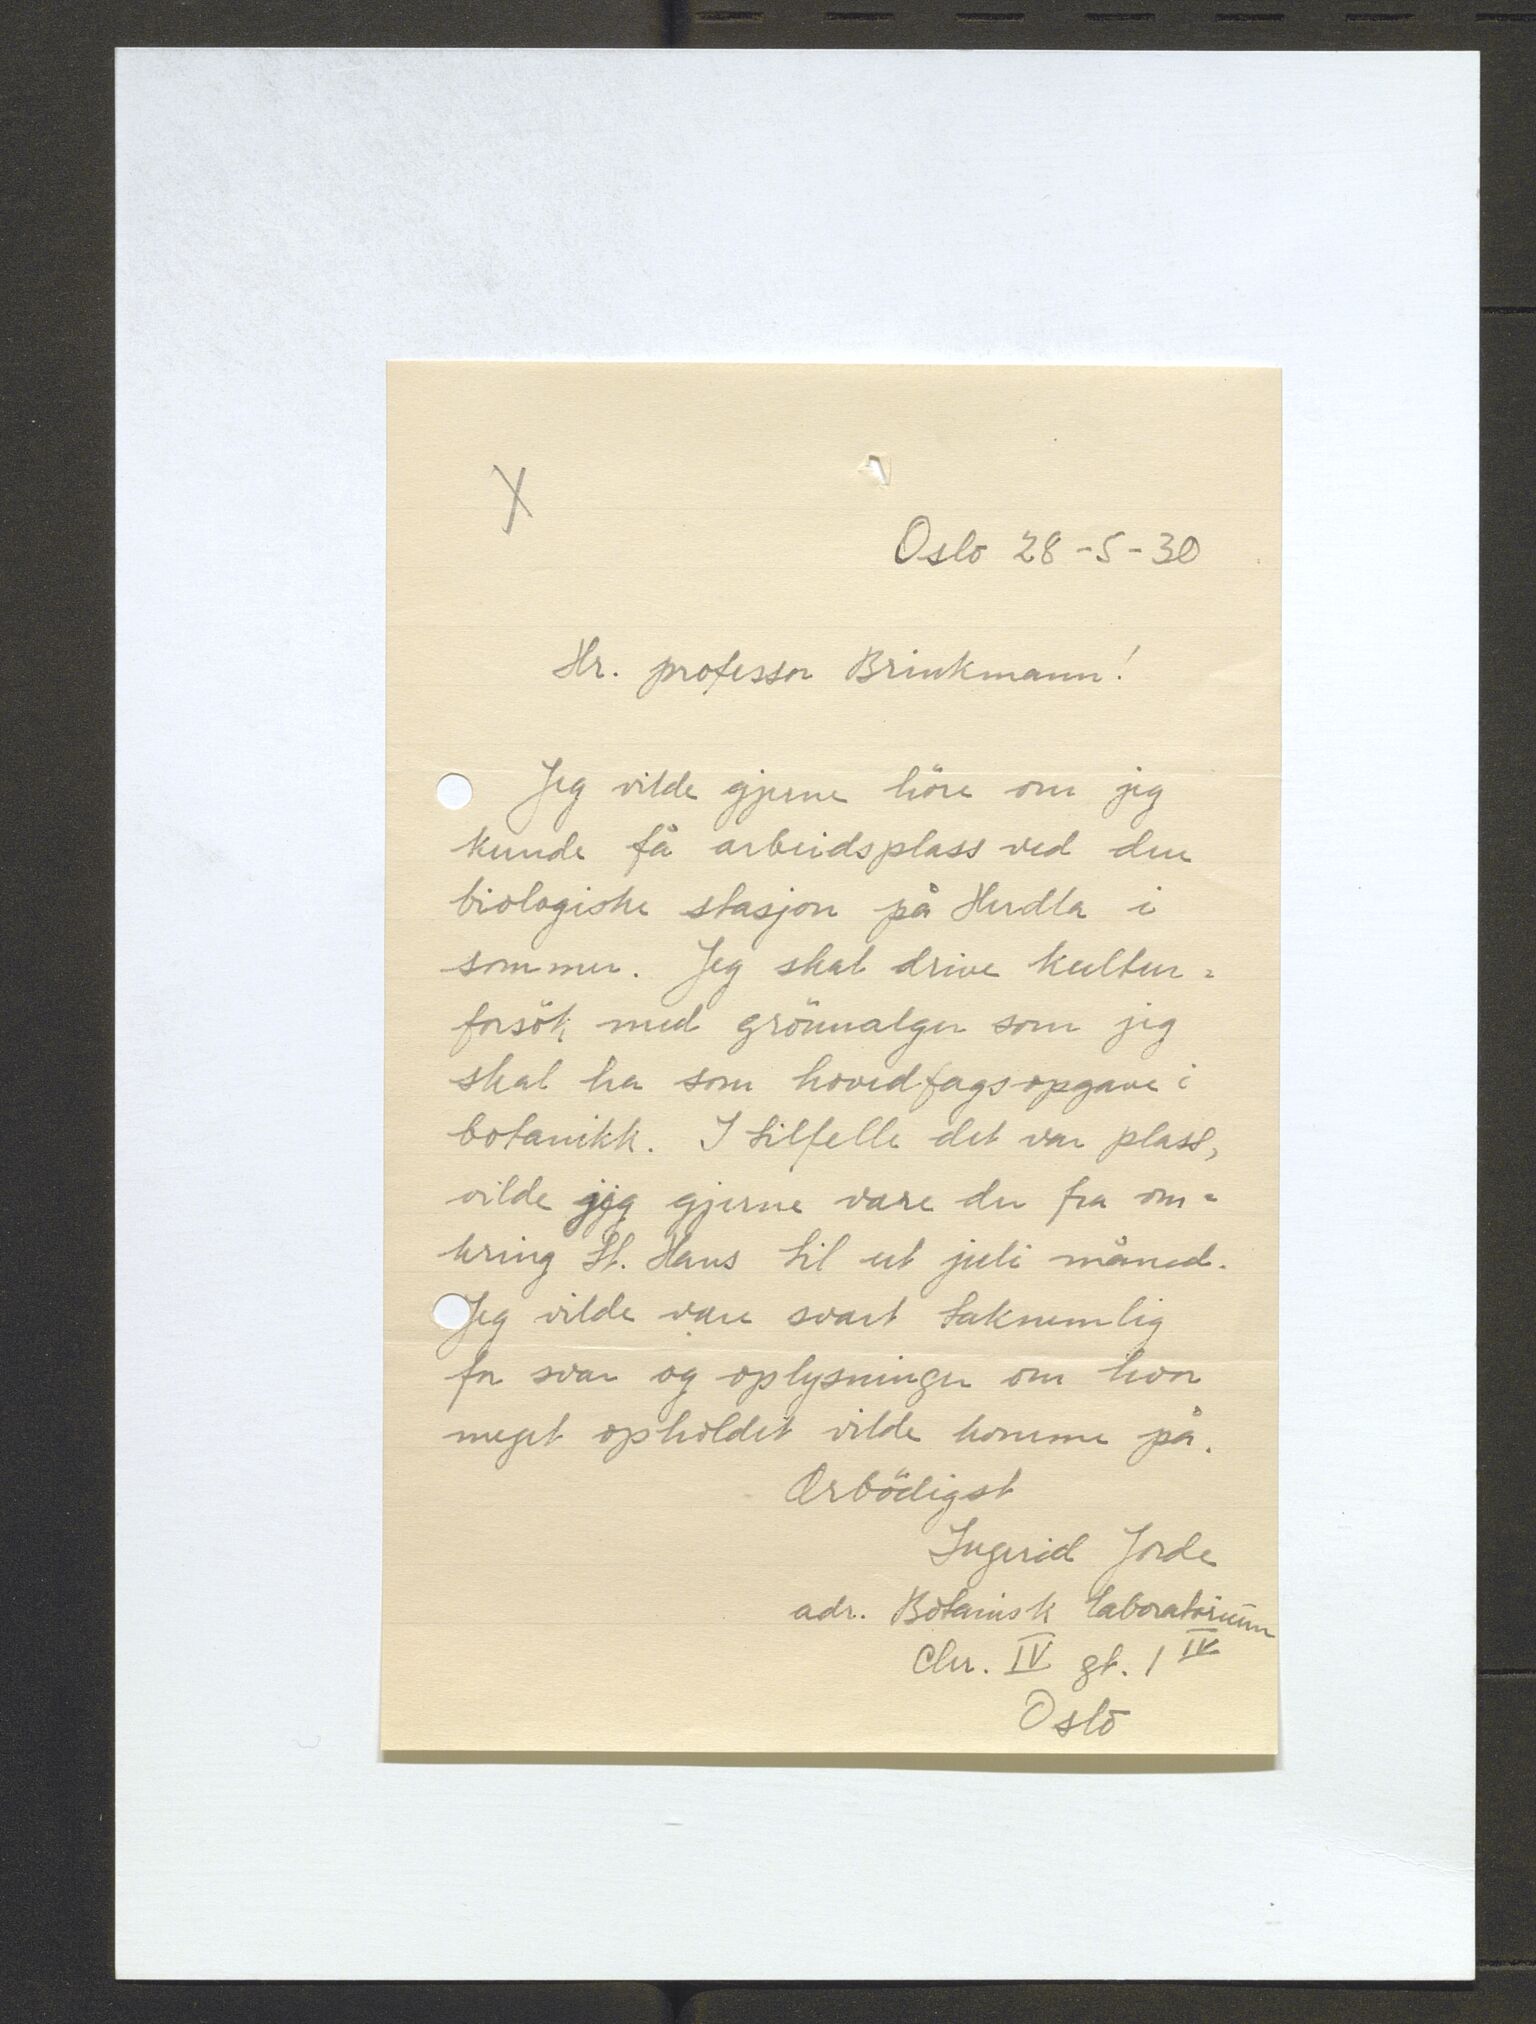 X
Oslo 28-5-30
Hr. professor Brinkmann!
Jeg vilde gjerne höre om jeg
kunde få arbeidsplass ved den
biologiske stasjon på Herdla i
sommer. Jeg skal drive kultur-
forsök med grönnalger som jeg
skal ha som hovedfagsopgave i
botanikk. I tilfelle det var plass,
vilde jeg gjerne være der fra om-
kring St. Hans til ut juli måned.
Jeg vilde være svært taknemlig
for svar og oplysninger om hvor
meget opholdet vilde komme på.
Ærbödigst
Ingerid Jorde
adr. Botanisk laboratorium
Chr. IV gt. 1 IV
Oslo